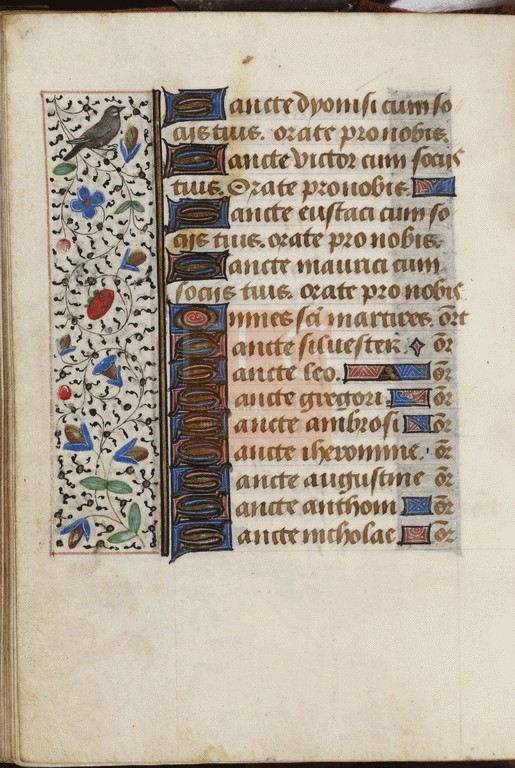 Sancte dyonisi cum so
ciis tuis. orate pro nobis.
Sancte victor cum sociis
tuis. Orate pro nobis.
Sancte eustaci cum so
ciis tuis. orate pro nobis.
Sancte maurici cum
sociis tuis. orate pro nobis.
Omnes sci martires. ort
Sancte siluester. or̄
Sancte leo. or̄
Sancte gregori. or̄
Sancte ambrosi or̄
Sancte iheronime. or̄
Sancte augustine or̄
Sancte anthoni or̄
Sancte nicholae or̄